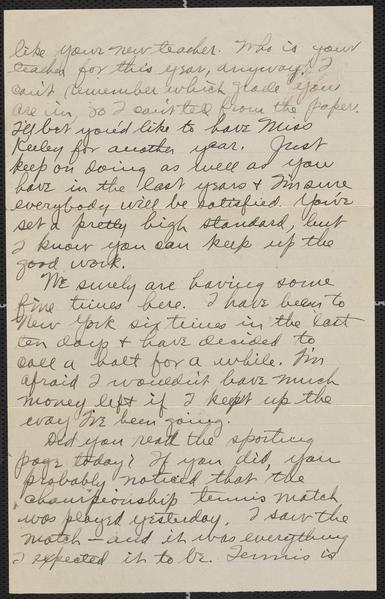 like your new teacher. Who is your
teacher for this year, anyway? I
can't remember which grade you
are in, so I can't tell from the paper.
I'll bet you'd like to have Miss
Keeley for another year. Just
keep on doing as well as you
have in the last years & I'm sure
everybody will be satisfied. You've
set a pretty high standard, but
I know you can keep up the
good work.
We surely are having some
fine times here. I have been to
New York six times in the last
ten days & have decided to
call a halt for a while. I'm
afraid I wouldn't have much
money left if I kept up the
way I've been going.
Did you read the sporting
page today? If you did, you
probably noticed that the
championship tennis match
was played yesterday. I saw the
match – and it was everything
I expected it to be. Tennis is